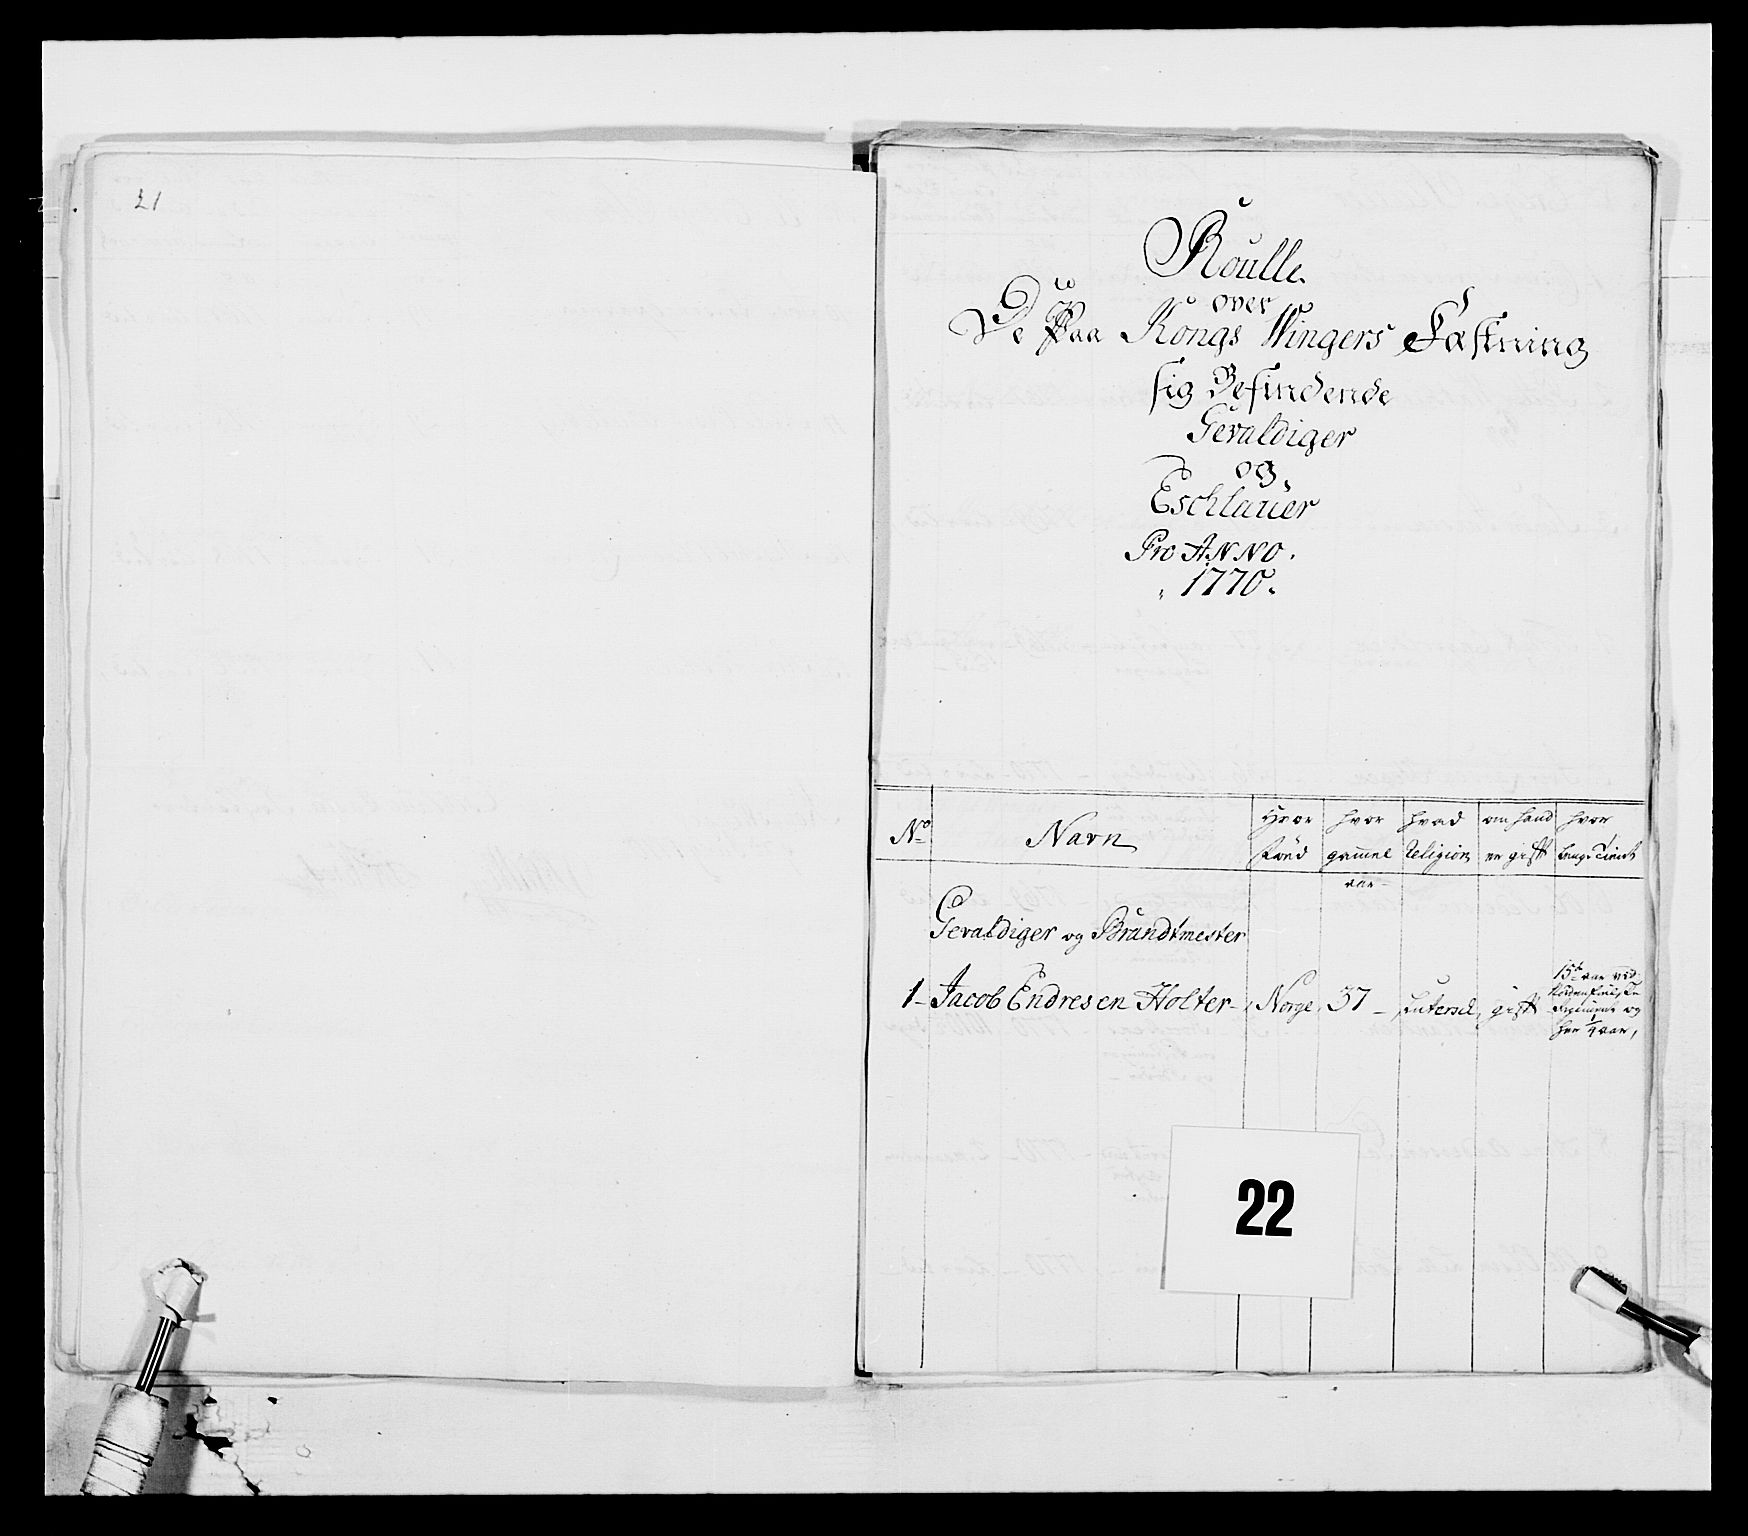 21
Roulle
over
De Paa Kongs Wingers Fæstning
sig Befindende
Gevaldiger
og
Eschlauer
Pro ANNO.
1770.
No Navn Hvor fød hvor gammel hvad Religion om hand er gift hvor længe tient
aar
Gevaldiger og Brandtmester
1- Jacob Endresen Holter - Norge, 37 - Lutersch, gift 15 aar ved
Regiment og
her 1/4 aar,
22